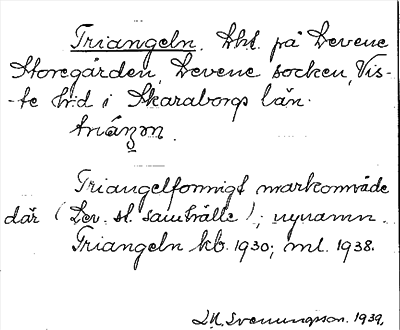 Triangeln. Lht. på Levene
Storegården, Levene socken, Vis-
-te hd i Skaraborgs län.
Triangelformigt markområde
där (Lev. st. samhälle); nynamn.
Triangeln kb. 1930; ml. 1938.
Svenungsson. 1939.